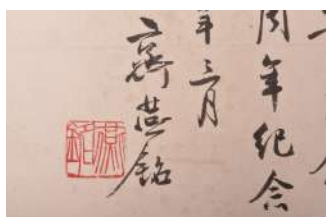 周年纪念
年三月
齊燕銘
燕銘